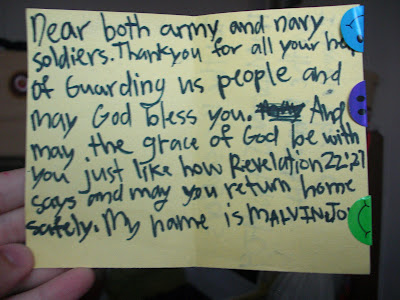 Dear both army and navy
soldiers. Thankyou for all your
of Guarding us people and
may God bless you. And
may the grace of God be with
you just like how Revelation 22:21
says and may you return home
safely. My name is MALVIN.